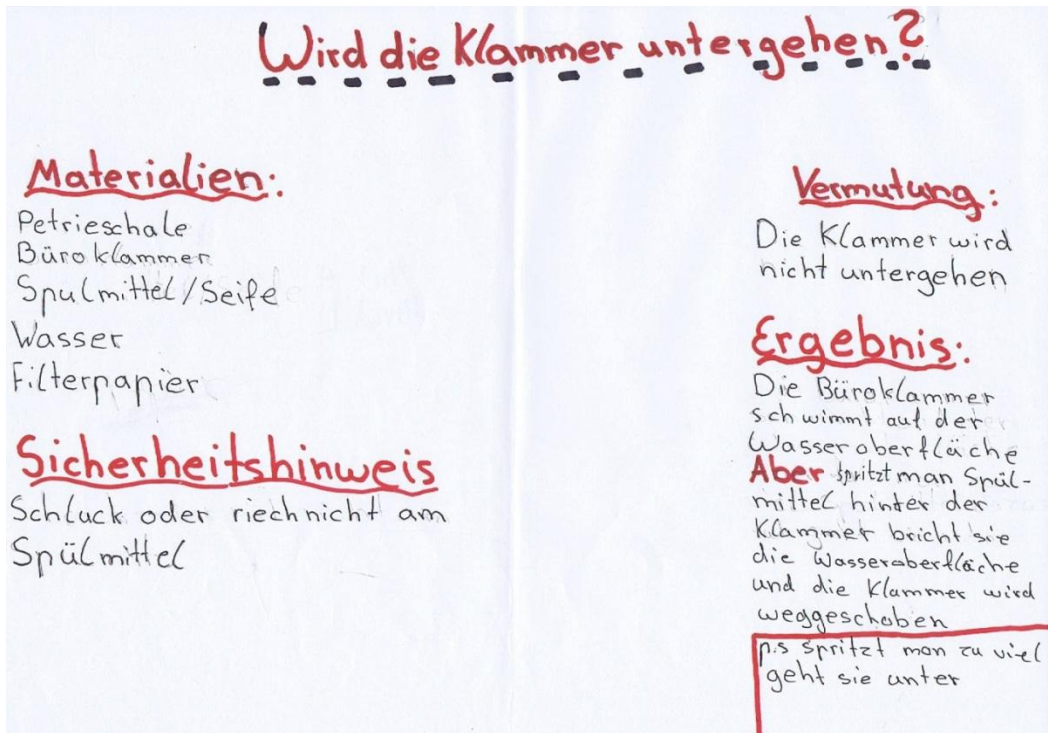 Wird die Klammer untergehen?
Materialien:
Petrieschale
Büroklammer
Spulmittel/Seife
Wasser
Filterpapier
Sicherheitshinweis
Schluck oder riech nicht am
Spülmittel
Vermutung:
Die Klammer wird
nicht untergehen
Ergebnis:
Die Büroklammer
schwimmt auf der
Wasseroberfläche
Aber spritzt man Spül-
mittel hinter der
Klammer bricht sie
die Wasseroberfläche
und die Klammer wird
weggeschoben
p.s spritzt man zu viel
geht sie unter